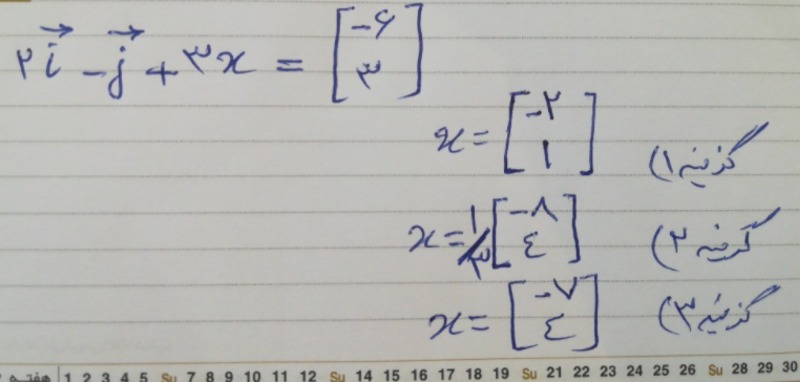 ۲i⃗ - j⃗ + ۳x = [-۶
۳]
x = [-۲
۱] گزینه ۱)
x = ۱/۳ [-۸
٤] گزینه ۲)
x = [-۷
٤] گزینه ۳)
هفته 1 2 3 4 5 Su 7 8 9 10 11 12 Su 14 15 16 17 18 19 Su 21 22 23 24 25 26 Su 28 29 30